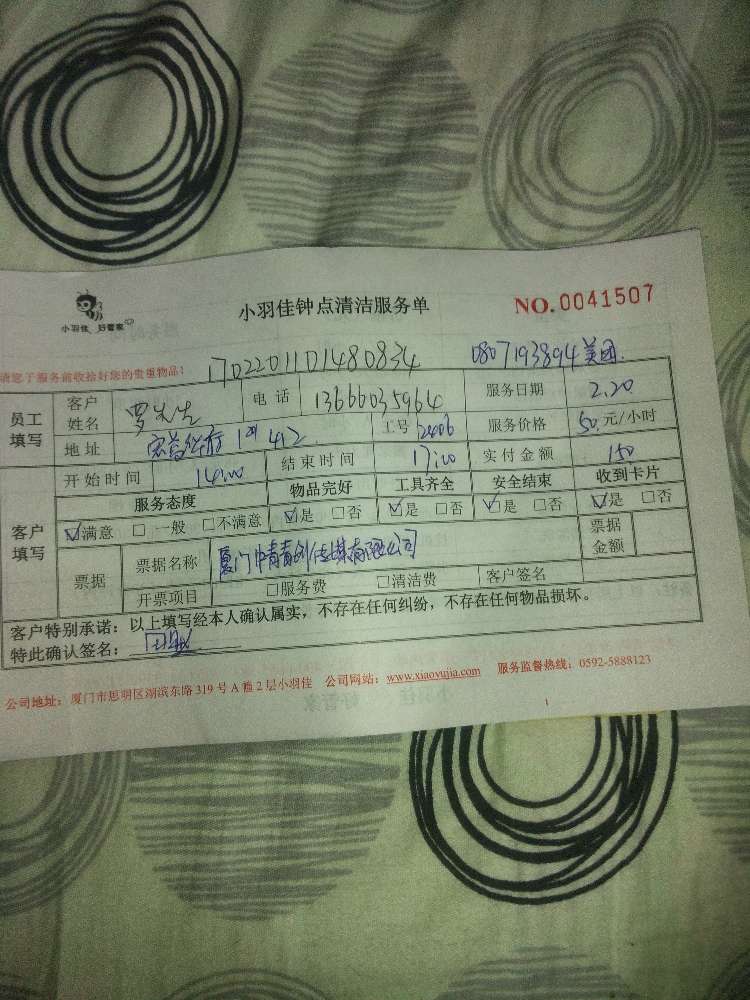 小羽佳 好管家
小羽佳钟点清洁服务单
NO.0041507
请您于服务前收拾好您的贵重物品！
1702201101480834
0807193894美团
员工填写 客户姓名 罗先生 电话 13666035964 服务日期 2.20
地址 1 412 工号 2406 服务价格 50元/小时
客户填写 开始时间 14:00 结束时间 17:00 实付金额 150
服务态度 物品完好 工具齐全 安全结束 收到卡片
☑满意 □一般 □不满意 ☑是 □否 ☑是 □否 ☑是 □否 ☑是 □否
票据 票据名称 厦门中青青创传媒有限公司 票据金额
开票项目 □服务费 □清洁费 客户签名
客户特别承诺：以上填写经本人确认属实，不存在任何纠纷，不存在任何物品损坏。
特此确认签名：
公司地址：厦门市思明区湖滨东路319号A幢2层小羽佳 公司网站：www.xiaoyujia.com 服务监督热线：0592-5888123